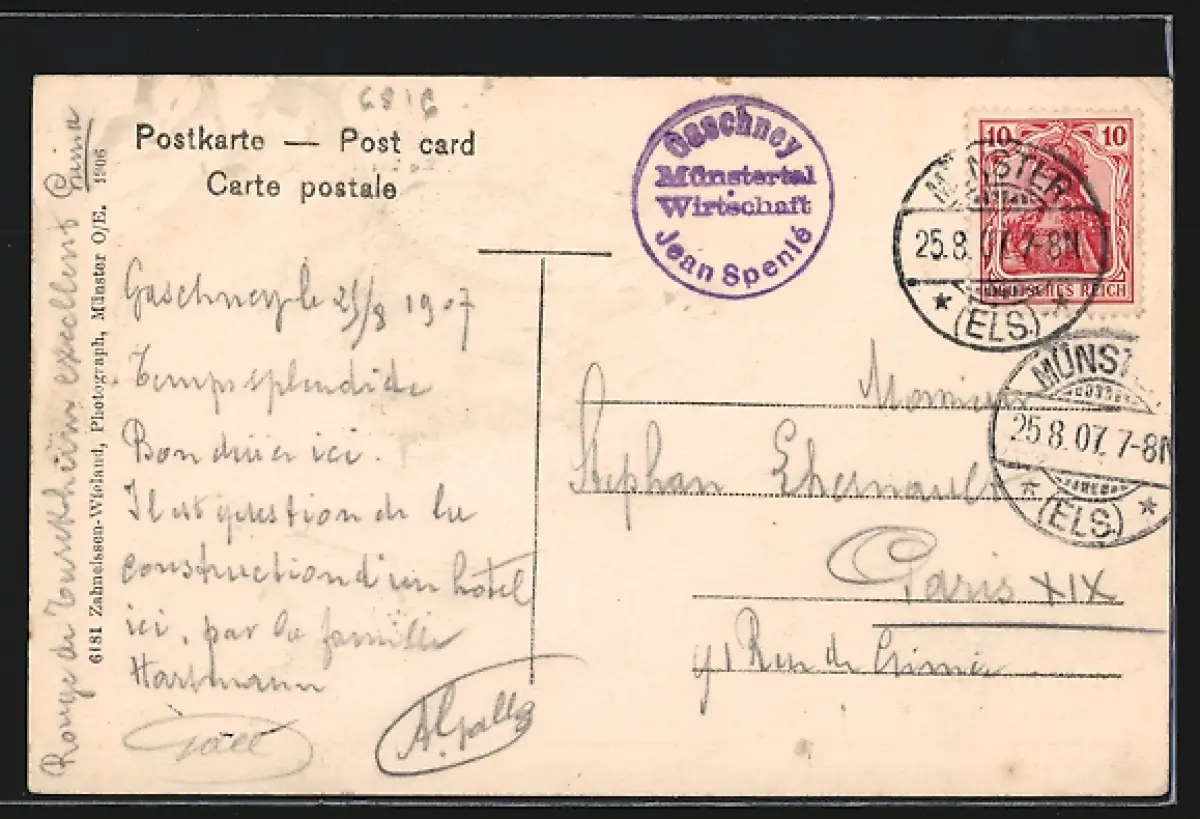 6818
Postkarte — Post card
Carte postale
Gaschney
Münstertal
Wirtschaft
Jean Spenlé
10 10
DEUTSCHES REICH
MÜNSTER
25.8.07. 7-8N
(ELS.)
MÜNST
25.8.07. 7-8N
(ELS.)
Gaschney le 25/8 1907
Temps splendide
Bon diner ici.
Il est question de la
construction d'un hôtel
ici, par la famille
Hartmann
Rouge de Turckheim excellent Prima
6181 Zahneissen-Wieland, Photograph, Münster O/E. 1906
Monsieur
Stephan
Paris XIX
91 Rue de Crimée